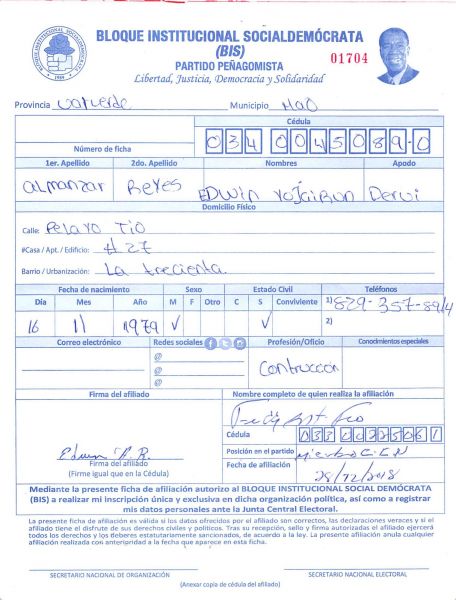 BLOQUE INSTITUCIONAL SOCIALDEMÓCRATA
(BIS)
PARTIDO PEÑAGOMISTA
01704
Libertad, Justicia, Democracia y Solidaridad
Provincia Valverde Municipio Mao
Cédula
Número de ficha 034 0045089-0
1er. Apellido 2do. Apellido Nombres Apodo
Almanzar Reyes EDWIN
Domicilio Físico
Calle: Pelayo Tio
#Casa / Apt. / Edificio: #27
Barrio / Urbanización: La trecienta
Fecha de nacimiento Sexo Estado Civil Teléfonos
Día Mes Año M F Otro C S Conviviente 1) 829-357-8914
16 11 1979 √ √ 2)
Correo electrónico Redes sociales Profesión/Oficio Conocimientos especiales
@
@ Contruccon
@
Firma del afiliado Nombre completo de quien realiza la afiliación
Cédula
Edwin A. R.
Firma del afiliado
(Firme igual que en la Cédula)
Posición en el partido Miembro C.C.N
Fecha de afiliación 28/12/2018
Mediante la presente ficha de afiliación autorizo al BLOQUE INSTITUCIONAL SOCIAL DEMÓCRATA
(BIS) a realizar mi inscripción única y exclusiva en dicha organización política, así como a registrar
mis datos personales ante la Junta Central Electoral.
La presente ficha de afiliación es válida si los datos ofrecidos por el afiliado son correctos, las declaraciones veraces y si el
afiliado tiene el disfrute de sus derechos civiles y políticos. Tras su recepción, sello y firma autorizada el afiliado ejercerá
todos los derechos y los deberes estatutariamente sancionados, de acuerdo a la ley. La presente afiliación anula cualquier
afiliación realizada con anterioridad a la fecha que aparece en esta ficha.
SECRETARIO NACIONAL DE ORGANIZACIÓN SECRETARIO NACIONAL ELECTORAL
(Anexar copia de cédula del afiliado)